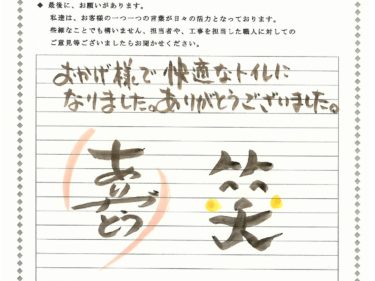 ◆ 最後に、お願いがあります。
私達は、お客様の一つ一つの言葉が日々の活力となっております。
些細なことでも構いません、担当者や、工事を担当した職人に対しての
ご意見等ございましたらお聞かせください。
おかげ様で快適なトイレに
なりました。ありがとうございました。
ありがとう
笑